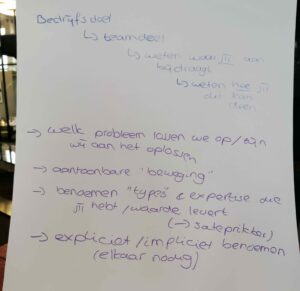 Bedrijfsdoel
↳ teamdoel
↳ weten waar jij aan
bijdraagt
↳ weten hoe jij
dat kan
doen
→ welk probleem lossen we op / zijn
wij aan het oplossen
→ aantoonbare "beweging"
→ benoemen "types" & expertise die
jij hebt / waarde levert
(→ sateprikker)
→ expliciet / impliciet benoemen
(elkaar nodig)